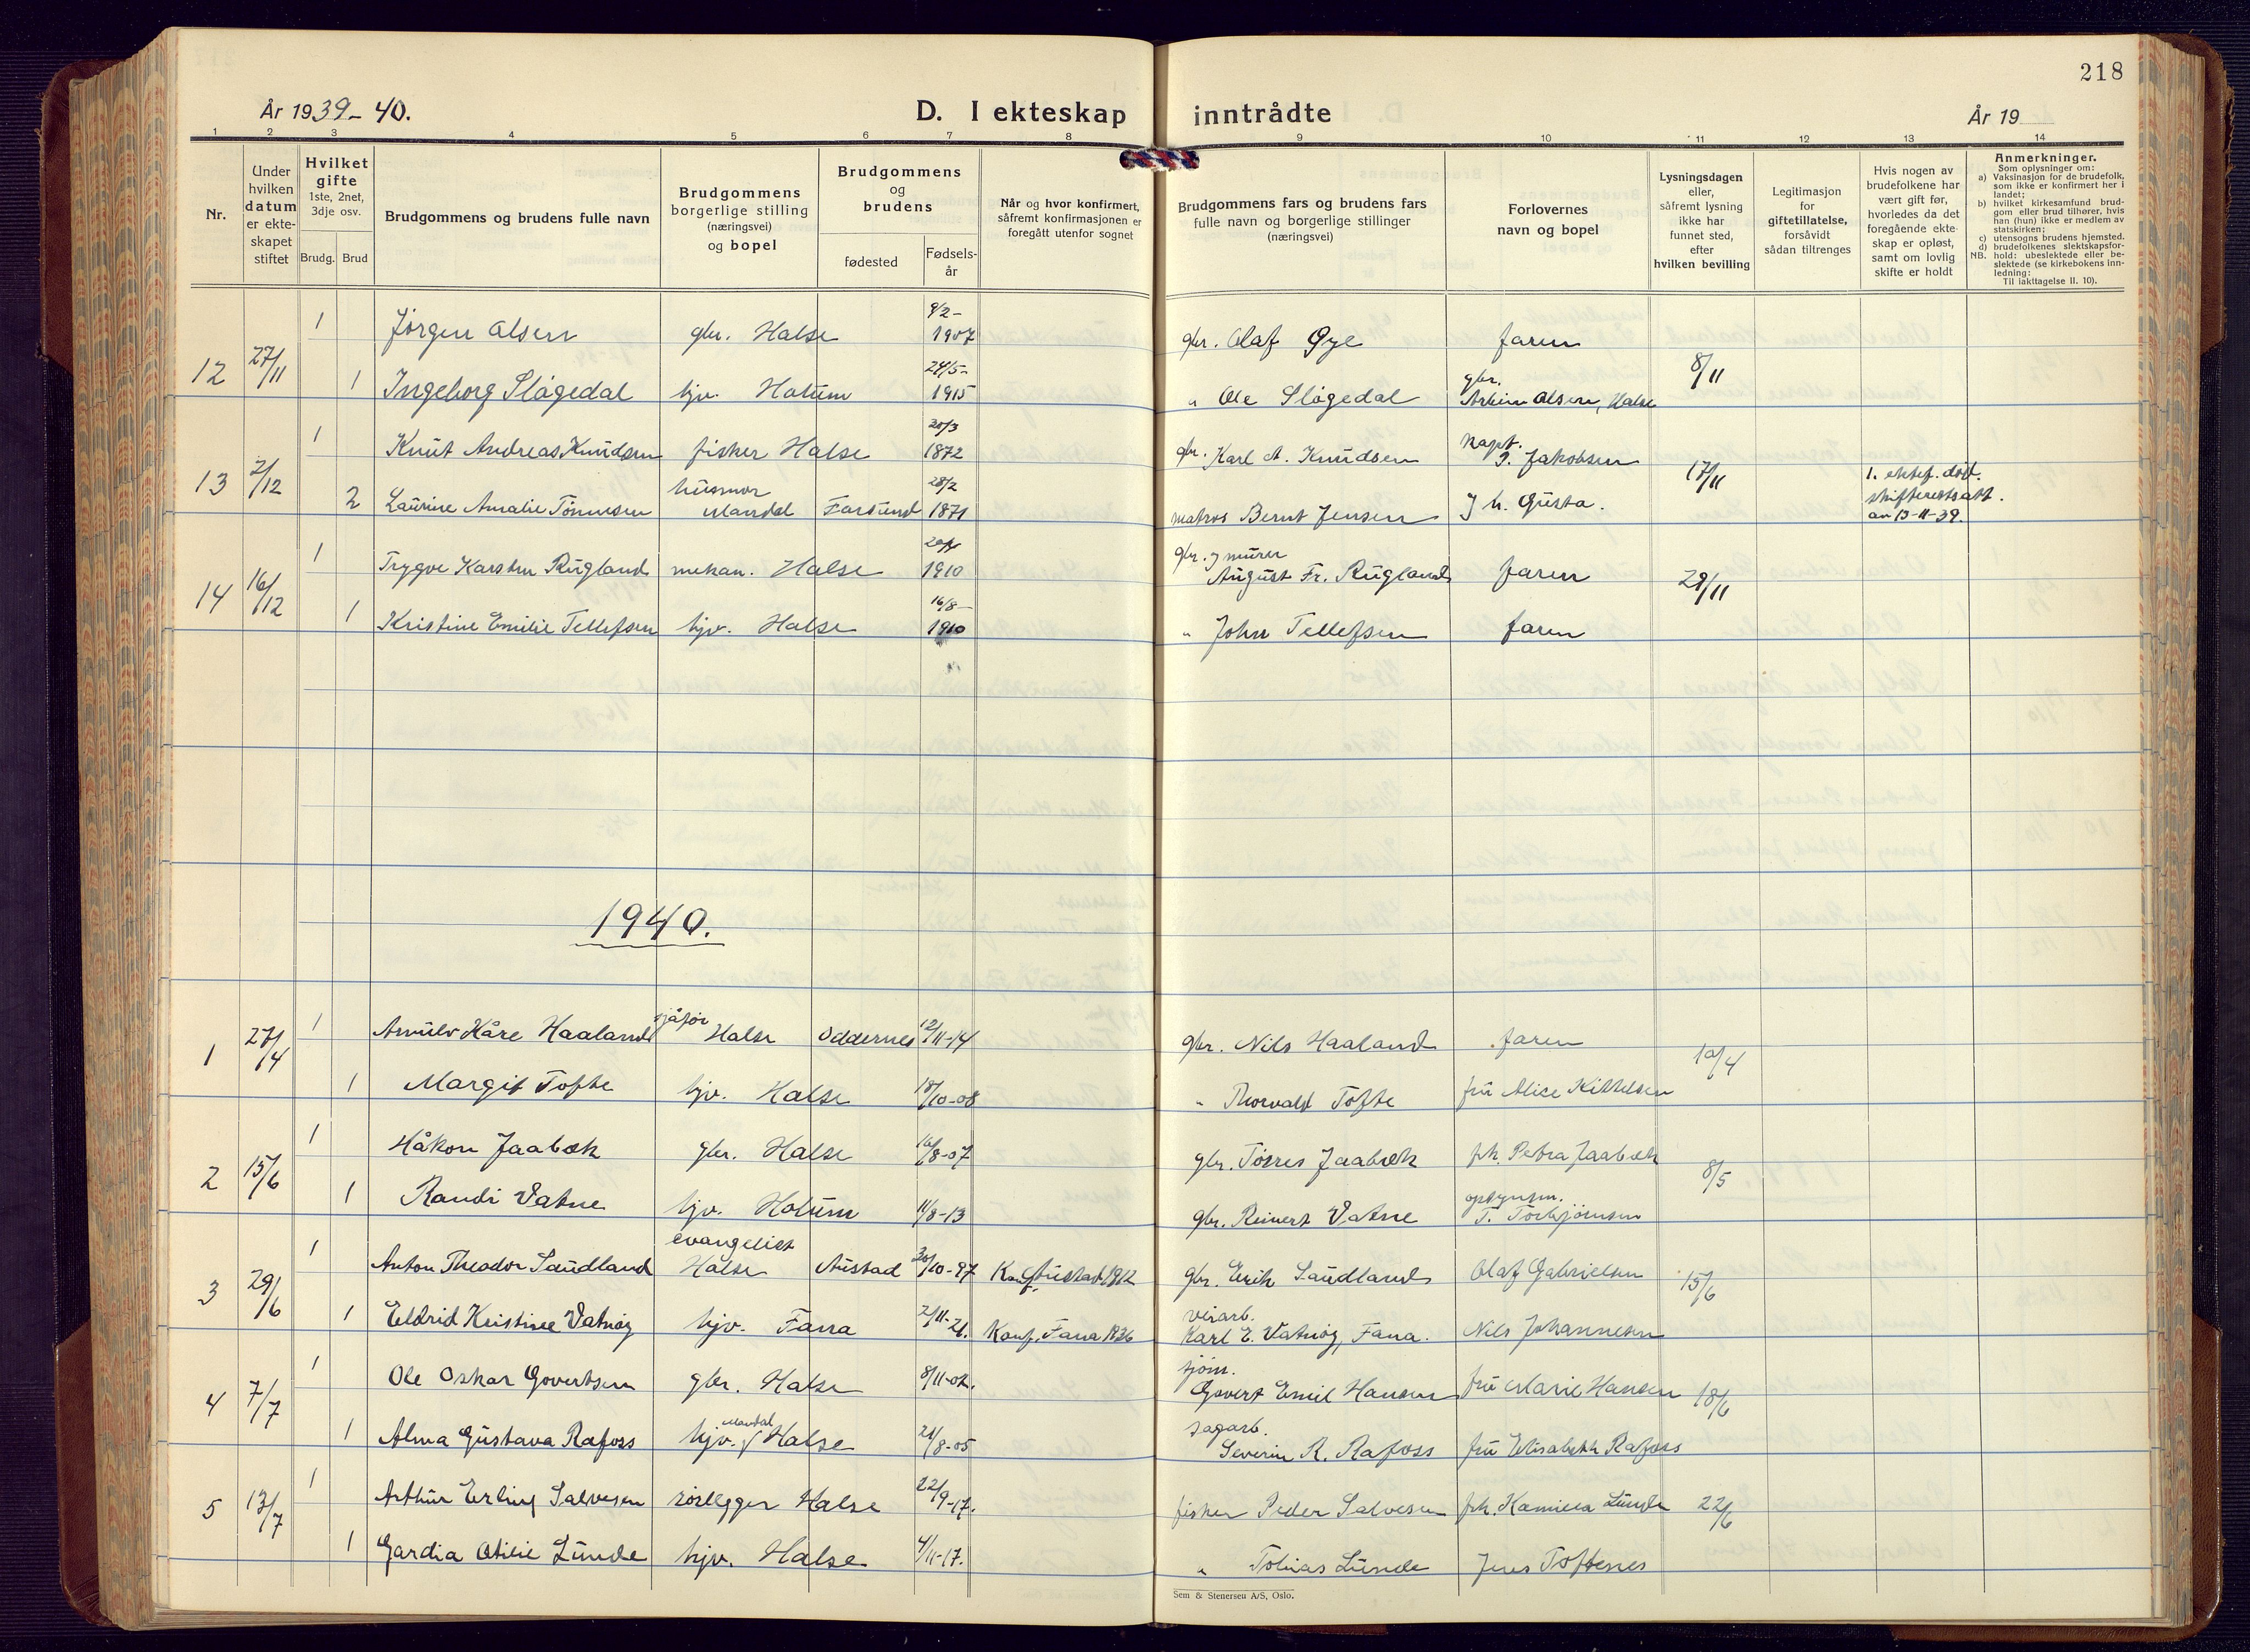 218
År 1939-40.
D. I ekteskap inntrådte
År 19
1 2 3 4 5 6 7 8 9 10 11 12 13 14
Nr.
Under hvilken datum er ekteskapet stiftet
Hvilket gifte
1ste, 2net, 3dje osv.
Brudg. Brud
Brudgommens og brudens fulle navn
Brudgommens borgerlige stilling (næringsvei) og bopel
Brudgommens og brudens
fødested
Fødselsår
Når og hvor konfirmert, såfremt konfirmasjonen er foregått utenfor sognet
Brudgommens fars og brudens fars fulle navn og borgerlige stillinger (næringsvei)
Forlovernes navn og bopel
Lysningsdagen eller, såfremt lysning ikke har funnet sted, efter hvilken bevilling
Legitimasjon for giftetillatelse, forsåvidt sådan tiltrenges
Hvis nogen av brudefolkene har vært gift før, hvorledes da det foregående ekteskap er opløst, samt om lovlig skifte er holdt
Anmerkninger.
Som oplysninger om:
a) Vaksinasjon for de brudefolk, som ikke er konfirmert her i landet;
b) hvilket kirkesamfund brudgom eller brud tilhører, hvis han (hun) ikke er medlem av statskirken;
c) utensogns brudens hjemsted.
d) brudefolkenes slektskapsforhold: ubeslektede eller beslektede (se kirkebokens innledning:
NB.
Til iakttagelse II. 10).
12 27/11 1 Jørgen Olsen gbr. Halse 9/2-1907 gbr. Olaf Øye faren 8/11
1 Ingeborg Sløgedal hjv. Holum 24/5-1915 " Ole Sløgedal gbr. Olsen, Halse
13 2/12 1 Knut Andreas Knudsen fisker Halse 20/3 1872 gbr. Karl A. Knudsen Kapt. P. Jakobsen 17/11
2 Laurine Amalie Tönnesen husmor Mandal Farsund 28/2 1871 matros Bernt Jensen J h. Gusta. 1. ektef. død. skifteretsatt. av 13-11-39.
14 16/12 1 Trygve Karsten Rugland mekan. Halse 1910 gbr. & murer August Fr. Rugland faren 29/11
1 Kristine Emilie Tellefsen hjv. Halse 16/8-1910 " John Tellefsen faren
1940.
1 27/4 1 Arnulv Kåre Haaland sjåfør Halse Oddernes 12/11-14 gbr. Nils Haaland faren 10/4
1 Margit Tofte hjv. Halse 18/10-08 " Thorvald Tofte fru Alice Kittelsen
2 15/6 1 Håkon Jaabæk gbr. Halse 16/8-07 gbr. Tørres Jaabæk frk. Petra Jaabæk 8/5
1 Randi Vatne hjv. Holum 11/8-13 gbr. Reinert Vatne opsynsm. T. Torbjörnsen
3 29/6 1 Anton Theodor Saudland evangelist Halse Austad 30/10-97 Konf. Austad 1912 gbr. Erik Saudland Olaf Gabrielsen 15/6
1 Eldrid Kristine Vatnøy hjv. Fana 2/11-21. Konf. Fana 1936 veiarb. Karl E. Vatnøy, Fana. Nils Johannesen
4 7/7 1 Ole Oskar Govertsen gbr. Halse 8/11-02. sjøm. Govert Emil Hansen fru Marie Hansen 18/6
1 Alma Gustava Rafoss hjv. Mandal Halse 21/8-05 sagarb. Severin R. Rafoss fru Elisabeth Rafoss
5 13/7 1 Arthur Erling Salvesen rørlegger Halse 22/9-17. fisker Peder Salvesen frk. Kamilla Lunde 22/6
1 Gardia Otilie Lunde hjv. Halse 4/11-17. " Tobias Lunde Jens Toftenes
Sem & Stenersen A/S, Oslo.